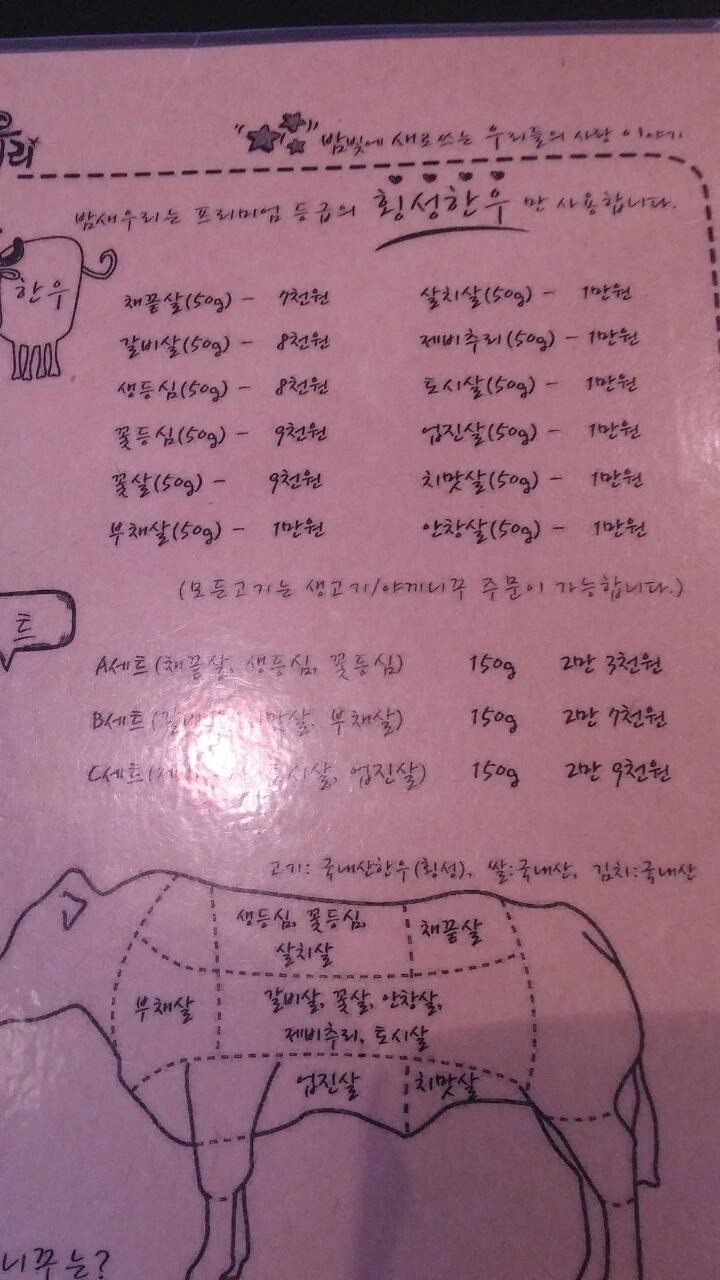 우리
밤빛에 새로쓰는 우리들의 사랑 이야기
밤새우리는 프리미엄 등급의 횡성한우 만 사용합니다.
한우
채끝살(50g) - 7천원
갈비살(50g) - 8천원
생등심(50g) - 8천원
꽃등심(50g) - 9천원
꽃살(50g) - 9천원
부채살(50g) - 1만원
살치살(50g) - 1만원
제비추리(50g) - 1만원
토시살(50g) - 1만원
업진살(50g) - 1만원
치맛살(50g) - 1만원
안창살(50g) - 1만원
(모든고기는 생고기/야끼니꾸 주문이 가능합니다.)
트
A세트(채끝살, 생등심, 꽃등심) 150g 2만 3천원
B세트( 부채살) 150g 2만 7천원
C세트( 토시살, 업진살) 150g 2만 9천원
고기: 국내산한우(횡성), 쌀:국내산, 김치:국내산
생등심, 꽃등심,
살치살
채끝살
부채살
갈비살, 꽃살, 안창살,
제비추리, 토시살
업진살
치맛살
니꾸는?